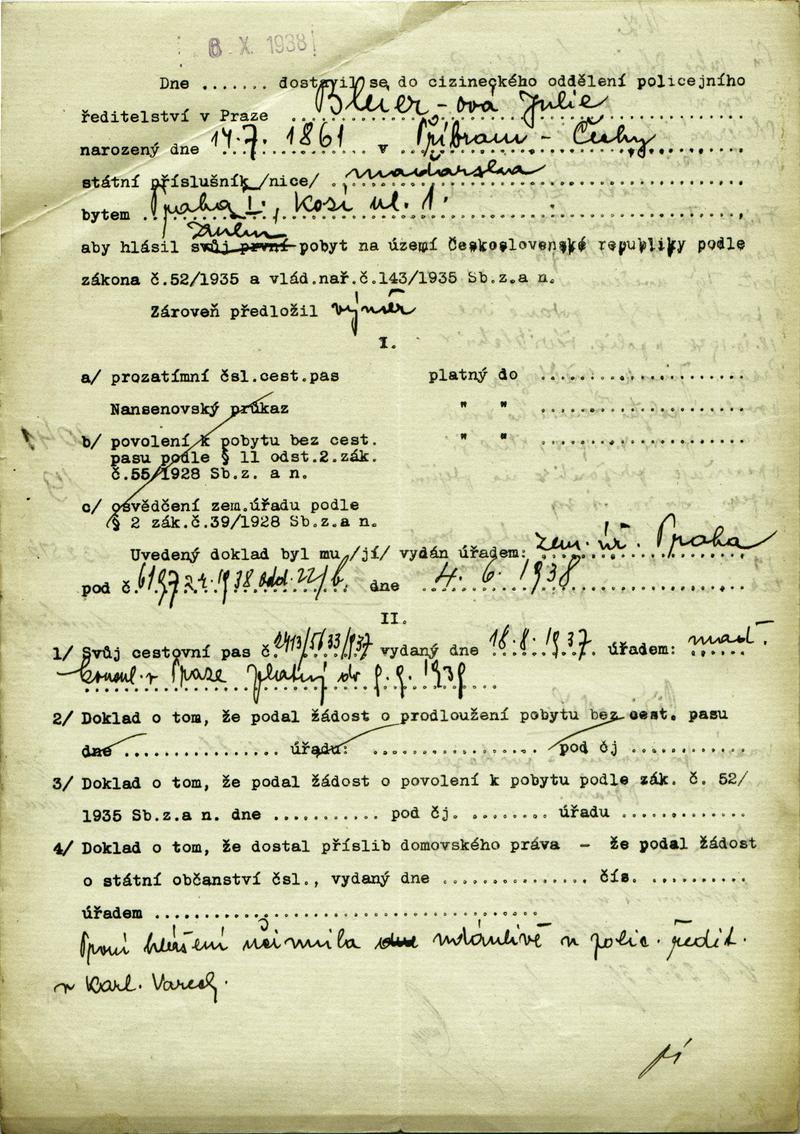 6 X. 1938
Dne ....... dostavil se do cizineckého oddělení policejního
ředitelství v Praze Bleier-ová Julie
narozený dne 14.7. 1861 v Příbram - Čechy
státní příslušník/nice/ maďarská
bytem Praha I., Kosí ul. 1.
aby hlásil svůj první pobyt na území Československé republiky podle
zákona č.52/1935 a vlád.nař.č.143/1935 Sb.z.a n.
Zároveň předložil výměr
I.
a/ prozatímní čsl.cest.pas platný do ....................
Nansenovský průkaz " " ....................
b/ povolení k pobytu bez cest. " " ....................
pasu podle § 11 odst.2.zák.
č.55/1928 Sb.z. a n.
c/ osvědčení zem.úřadu podle
§ 2 zák.č.39/1928 Sb.z.a n.
Uvedený doklad byl mu /jí/ vydán úřadem: zem. úř. Praha
pod č. 1938 odd. 22/b. dne 4. 6. 1938
II.
1/ Svůj cestovní pas č. 2413/5133/937 vydaný dne 18.8.1937. úřadem: maď.
konsul. v Praze platný do 1939
2/ Doklad o tom, že podal žádost o prodloužení pobytu bez cest. pasu
dne ................ úřadu: ................. pod čj ............
3/ Doklad o tom, že podal žádost o povolení k pobytu podle zák. č. 52/
1935 Sb.z.a n. dne ........... pod čj. ........ úřadu .............
4/ Doklad o tom, že dostal příslib domovského práva - že podal žádost
o státní občanství čsl., vydaný dne ............... čís. ..........
úřadem ........................................
První hlášení učinila v polic. ředit.
v Karl. Varech.